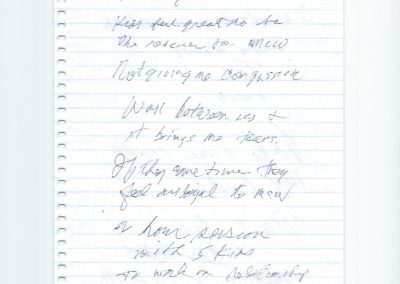 Kids feel great to be
the rescuer for
Not giving me compassion
Wall between us +
it brings me tears.
If they time they
feel disloyal to
2 hour session
with 5 kids
to work on relationship